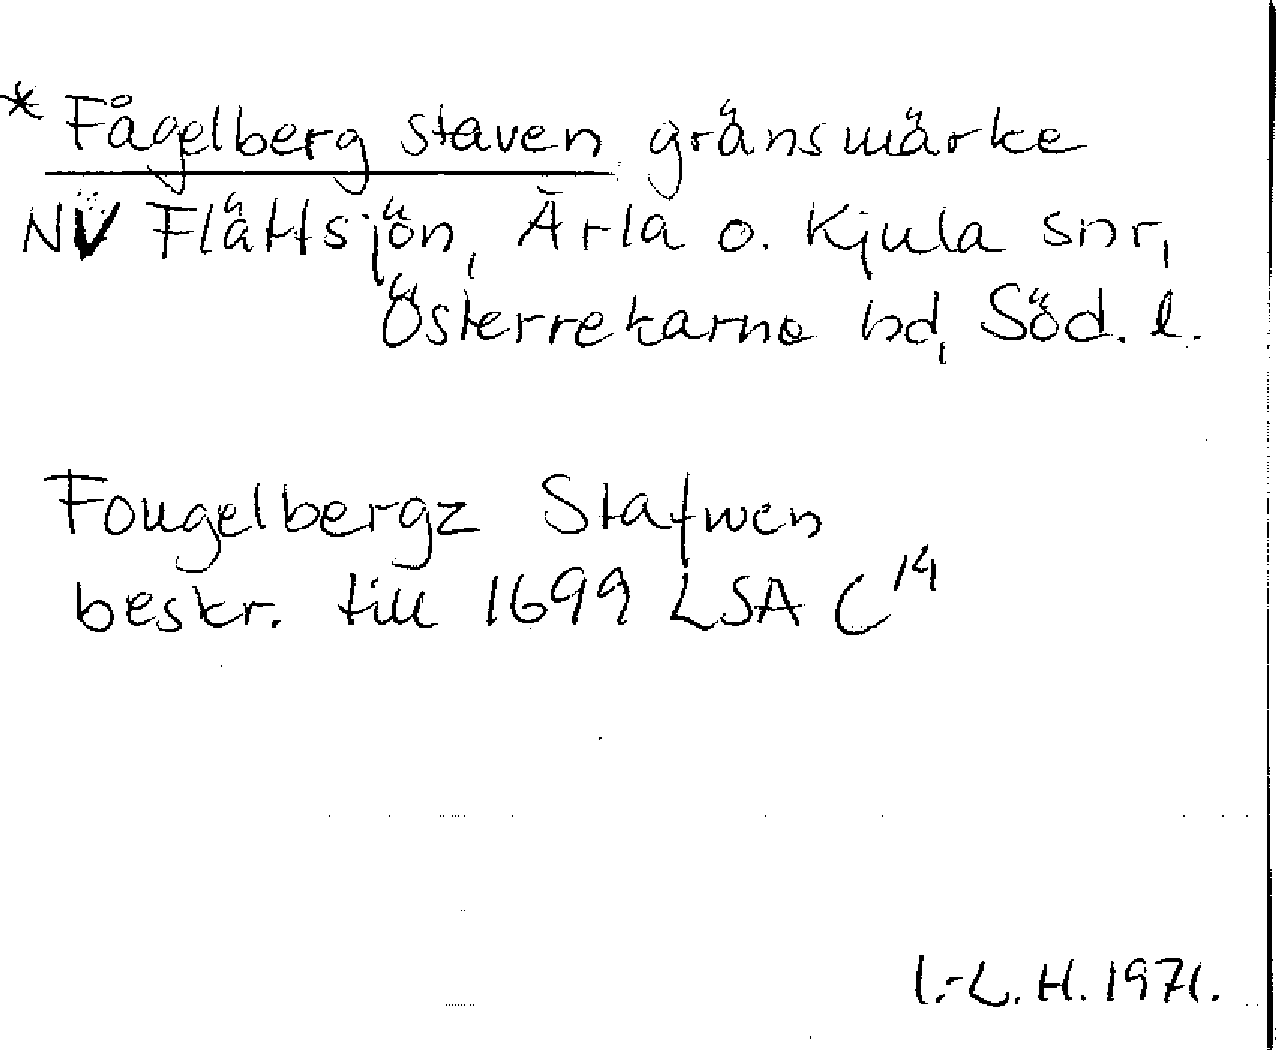 * Fågelberg staven gränsmärke
NV Flättsjön, Ärla o. Kjula snr,
Österrekarne hd, Söd. l.
Fougelbergz Stafwen
beskr. till 1699 LSA C14
I.-L. H. 1971.